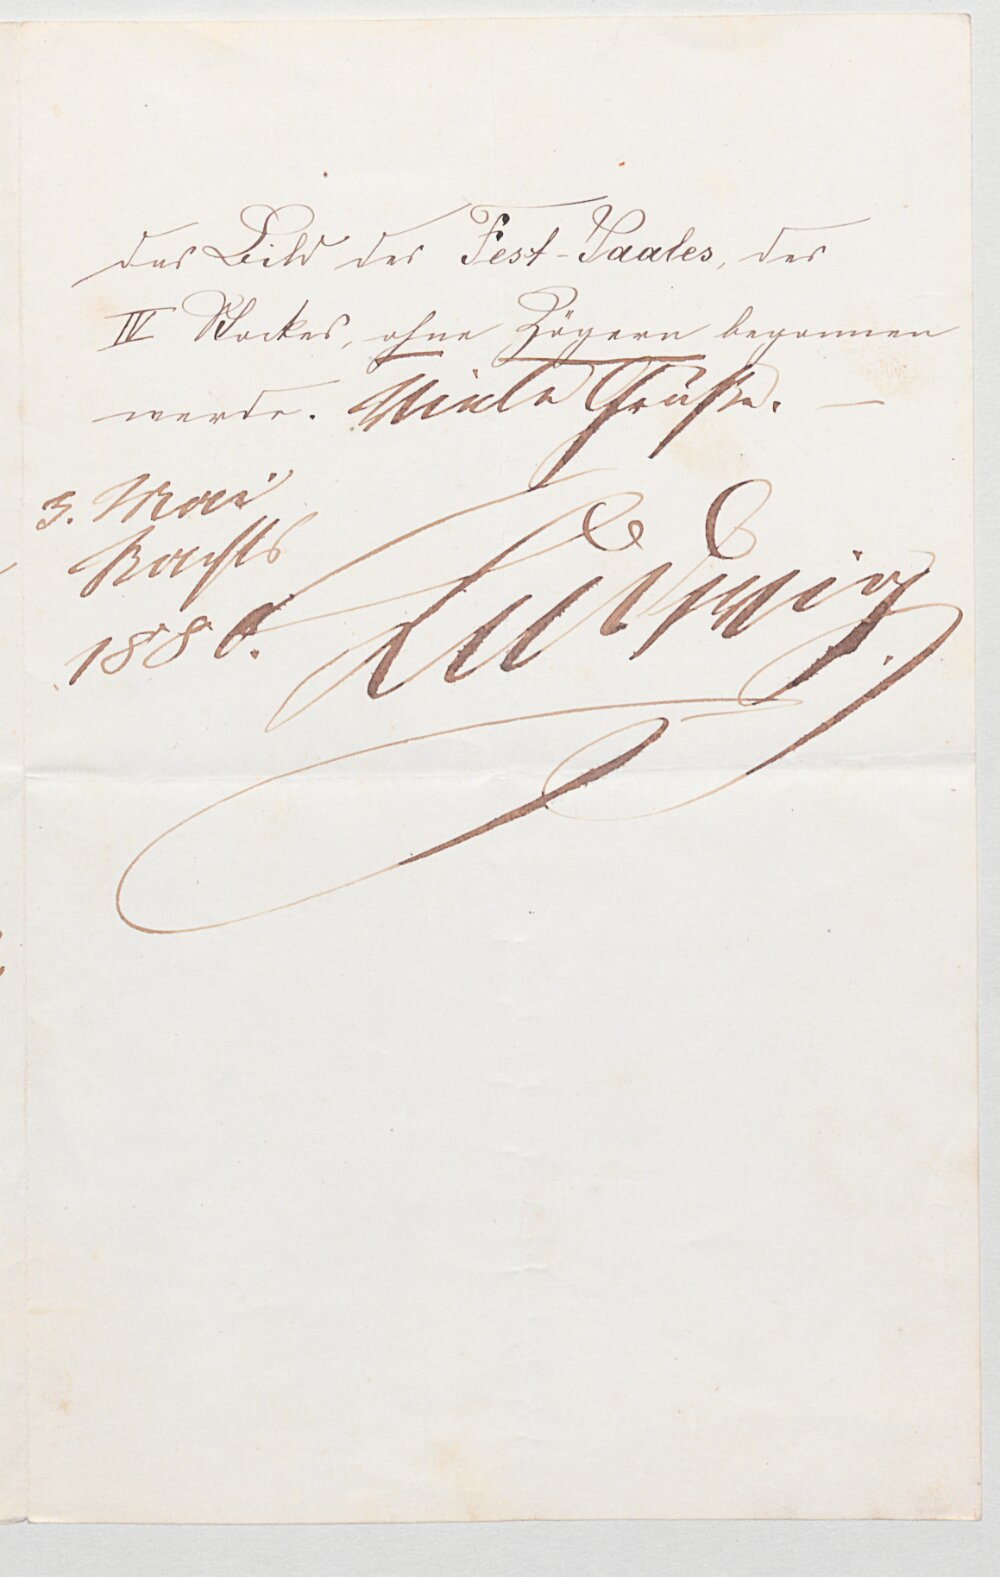 das Bild des Fest-Saales, des
IV Stockes, ohne Zögern begonnen
werde. Viele Grüße. —
3. Mai
Nachts
1886.
Ludwig.